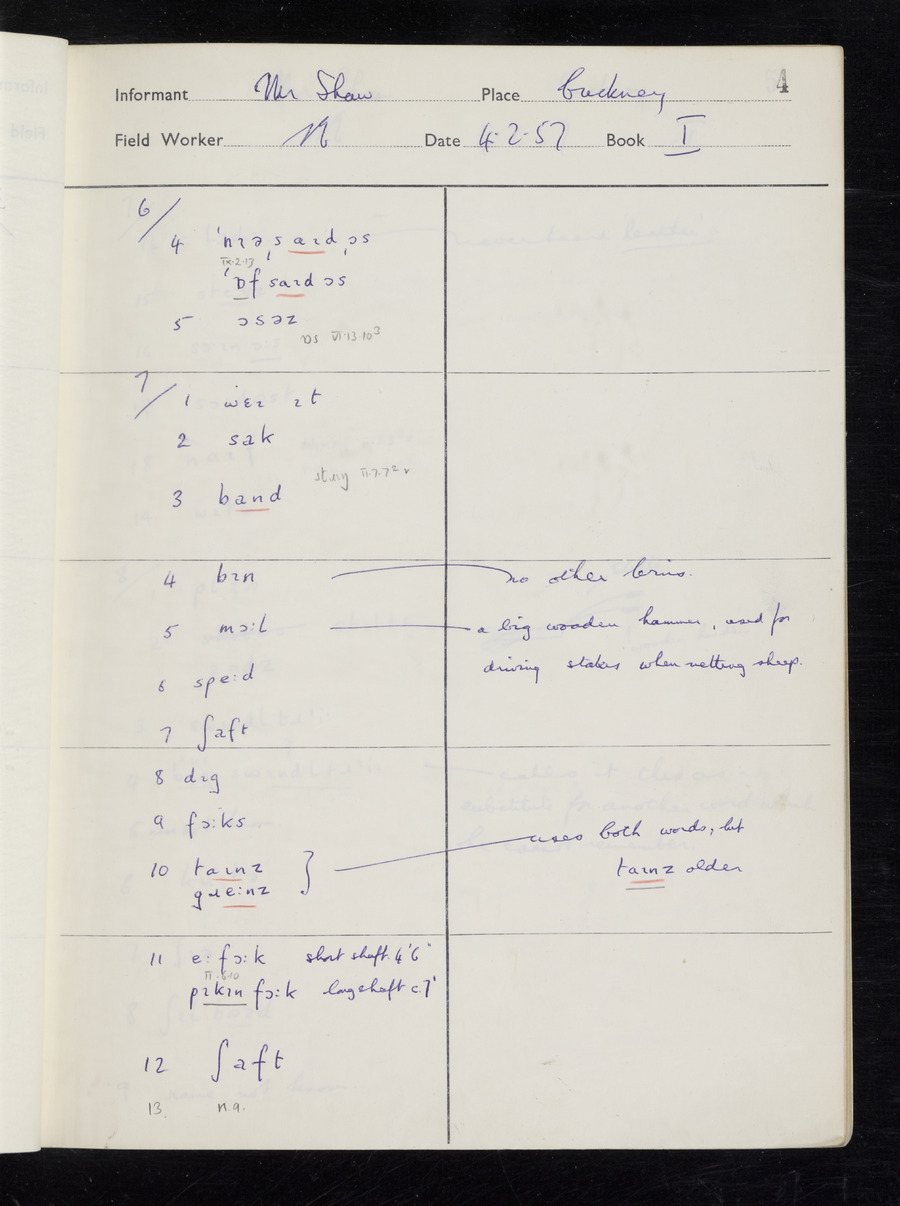 4
Informant Mr Shaw Place Cuckney
Field Worker N Date 4·2·57 Book I
6/
4 ˈnɪəˌsaɪdˌɔs
IX·2·13
ˈɒfsaɪdɔs
5 ɔsəz
ɒs VI·13·10³
7/ 1 wɛɪ ɪt
2 sak
II·7·7
3 band
4 bɪn no other terms.
5 mɔ:l a big wooden hammer, used for
driving stakes when netting sheep.
6 spe:d
7 ʃaft
8 dɪg
9 fɔ:ks
10 taɪnz } uses both words, but
gɹe:nz taɪnz older
11 e: fɔ:k short shaft 4'6"
pɪkɪn fɔ:k long shaft c.7'
12 ʃaft
13. n.a.